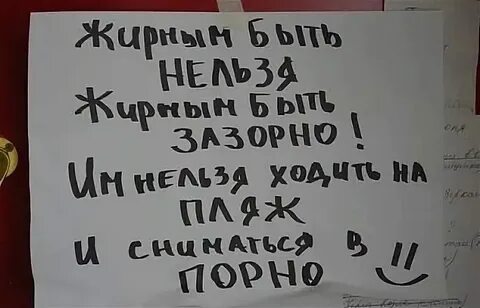 Жирным быть
нельзя
Жирным быть
зазорно!
Им нельзя ходить на
пляж
и сниматься в
порно